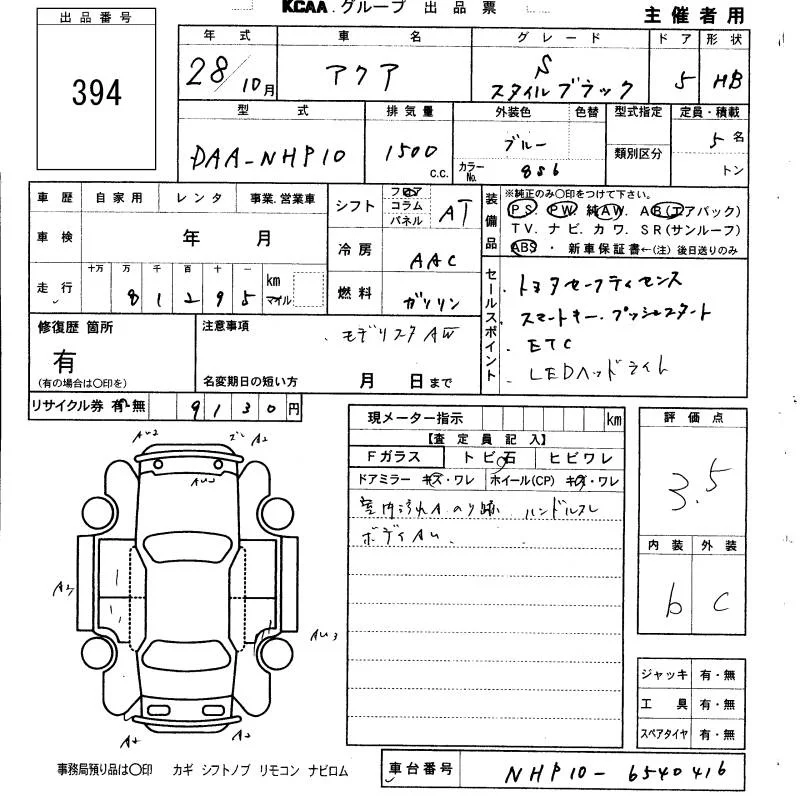 KCAA グループ 出品票
主催者用
出品番号
394
年式 車名 グレード ドア 形状
28/10月 アクア S スタイルブラック 5 HB
型式 排気量 外装色 色替 型式指定 定員・積載
DAA-NHP10 1500 c.c. ブルー 類別区分 5名
カラーNo. 8S6 トン
車歴 自家用 レンタ 事業.営業車
シフト フロア コラム パネル AT
装備品
※純正のみ〇印をつけて下さい。
PS. PW. 純AW. AB(エアバック)
TV. ナビ. カワ. SR(サンルーフ)
ABS ・ 新車保証書←(注) 後日送りのみ
車検 年 月
冷房 AAC
走行 十万 万 千 百 十 km マイル
81295
燃料 ガソリン
セールスポイント
・トヨタセーフティセンス
・スマートキー・プッシュスタート
・ETC
・LEDヘッドライト
修復歴 箇所
有
(有の場合は〇印を)
注意事項
・モデリスタAW
名変期日の短い方 月 日まで
リサイクル券 有・無 9130円
現メーター指示 km
【査定員記入】
Fガラス トビ石 ヒビワレ
ドアミラー キズ・ワレ ホイール(CP) キズ・ワレ
室内汚れA のり跡 ハンドルスレ
ボディAU
評価点
3.5
内装 外装
b C
AU2 A2
A2
AU3
ジャッキ 有・無
工具 有・無
スペアタイヤ 有・無
事務局預り品は〇印 カギ シフトノブ リモコン ナビロム
車台番号 NHP10-6540416